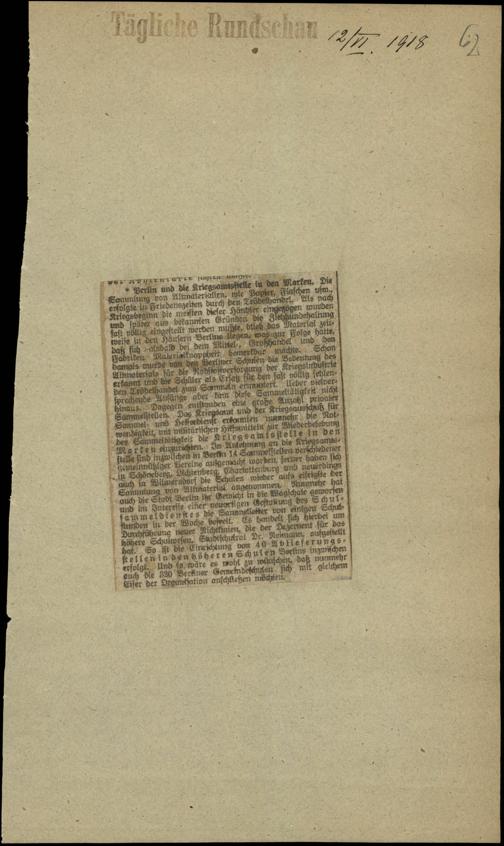 Tägliche Rundschau
12/VI. 1918
62
* Berlin und die Kriegsamtsstelle in den Marken. Die
Sammlung von Altmaterialien, wie Papier, Flaschen usw.,
erfolgte in Friedenszeiten durch den Trödelhandel. Als nach
Kriegsbeginn die meisten dieser Händler eingezogen wurden
und später aus bekannten Gründen die
fast völlig eingestellt werden mußte, blieb das Material zeit-
weise in den Häusern Berlins liegen, was zur Folge hatte,
daß sich alsbald bei dem Mittel-, Großhandel und den
Fabriken Materialknappheit bemerkbar machte. Schon
damals wurde von den Berliner Schulen die Bedeutung des
Altmaterials für die Rohstoffversorgung der Kriegsindustrie
erkannt und die Schüler als Ersatz für den fast völlig fehlen-
den Trödelhandel zum Sammeln ermuntert. Ueber vielver-
sprechende Anfänge aber kam diese Sammeltätigkeit nicht
hinaus. Dagegen entstanden eine große Anzahl privater
Sammelstellen. Das Kriegsamt und der Kriegsausschuß für
Sammel- und Helferdienst erkannten nunmehr die Not-
wendigkeit, mit Hilfsmitteln zur Wiederbelebung
der Sammeltätigkeit die Kriegsamtsstelle in den
Marken einzurichten. Im Anlehnung an die Kriegsamts-
stelle sind inzwischen in Berlin 14 Sammelstellen verschiedener
gemeinnütziger Vereine aufgemacht worden, ferner haben sich
in Schöneberg, Lichtenberg, Charlottenburg und neuerdings
auch in Wilmersdorf die Schulen wieder aufs eifrigste der
Sammlung von Altmaterial angenommen. Nunmehr hat
auch die Stadt Berlin ihr Gewicht in die Wagschale geworfen
und im Interesse einer neuartigen Gestaltung des Schul-
sammeldienstes die Sammelleiter von einigen Schul-
stunden in der Woche befreit. Es handelt sich hierbei um
Durchführung neuer Richtlinien, die der Dezernent für das
höhere Schulwesen, Stadtschulrat Dr. Reimann, aufgestellt
hat. So ist die Einrichtung von 40 Ablieferungs-
stellen in den höheren Schulen Berlins inzwischen
erfolgt. Und so wäre es wohl zu wünschen, daß nunmehr
auch die 330 Berliner Gemeindeschulen sich mit gleichem
Eifer der Organisation anschließen möchten.